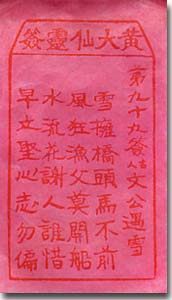 黃大仙靈簽
第九十九簽古人文公遇雪
雪擁橋頭馬不前
風狂漁父莫開船
水流花謝人誰惜
早立堅心志勿偏